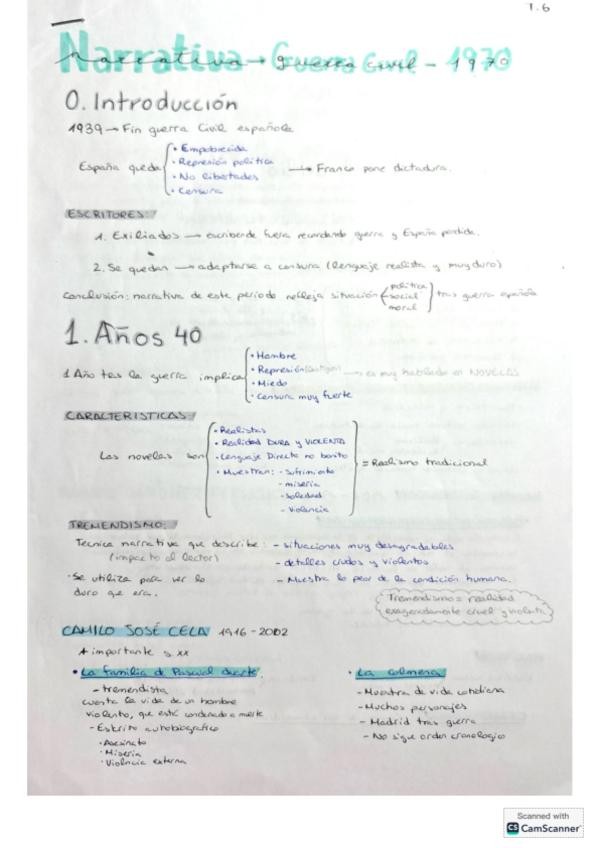 T.6
Narrativa → Guerra Civil - 1970
0. Introducción
1939 → Fin guerra Civil española
España queda
• Empobrecida
• Represión política
• No libertades
• Censura
→ Franco pone dictadura.
ESCRITORES:
1. Exiliados → escriben desde fuera recordando guerra y España perdida.
2. Se quedan → adaptarse a censura (lenguaje realista y muy duro)
Conclusión: narrativa de este periodo refleja situación
política
social
moral
tras guerra española
1. Años 40
1 Año tras la guerra implica
• Hambre
• Represión
• Miedo
• Censura muy fuerte
→ es muy hablado en NOVELAS
CARACTERISTICAS:
Las novelas son
• Realistas
• Realidad DURA y VIOLENTA
• Lenguaje Directo no bonito
• Muestran: - sufrimiento
- miseria
- soledad
- violencia
= Realismo tradicional
TREMENDISMO:
Tecnica narrativa que describe:
(impacto al lector)
- situaciones muy desagradables
- detalles crudos y violentos
- Muestra lo peor de la condición humana.
• Se utiliza para ver lo
duro que era.
Tremendismo = realidad
exageradamente cruel y violenta
CAMILO JOSÉ CELA 1916 - 2002
+ importante s. XX
• La familia de Pascual duarte.
- tremendista
cuenta la vida de un hombre
violento, que esté condenado a muerte
- Escrito autobiografico
• Asesinato
• Miseria
• Violencia externa
• La colmena
- Muestra de vida cotidiana
- Muchos personajes
- Madrid tras guerra
- No sigue orden cronologico
Scanned with
CS CamScanner